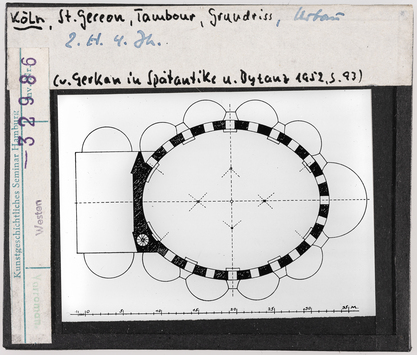 Köln, St. Gereon, Tambour, Grundriss, Urbau
2. H. 4. Jh.
(v. Gerkan in Spätantike u. Byzanz 1952, S. 93)
Kunstgeschichtliches Seminar Hamburg
Inv. Nr.
32986
Westen